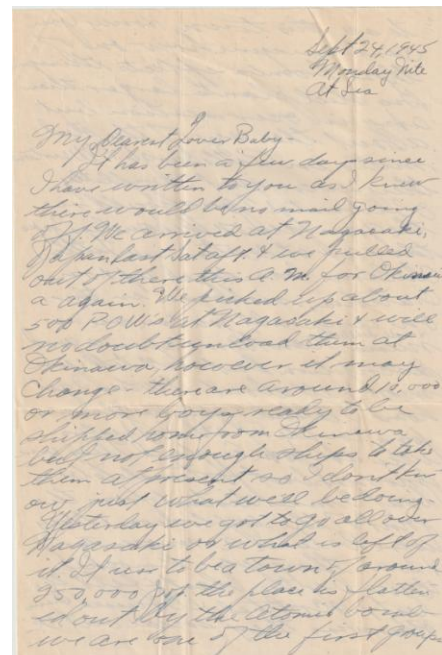 Sept 24, 1945
Monday Nite
At Sea
My Dearest Lover Baby-
It has been a few days since
I have written to you as I knew
there would be no mail going
off. We arrived at Nagasaki,
Japan last Sat aft & we pulled
out of there this A.M. for Okinaw
a again. We picked up about
500 P.O.W.s at Nagasaki & will
no doubt unload them at
Okinawa, however it may
change - there are around 10,000
or more boys ready to be
shipped home from Okinawa
but not enough ships to take
them at present so I don't kn
ow just what we'll be doing.
Yesterday we got to go all over
Nagasaki or what is left of
it. It use to be a town of around
250,000 the place is flatten
ed out by the Atomic bomb
we are one of the first groups